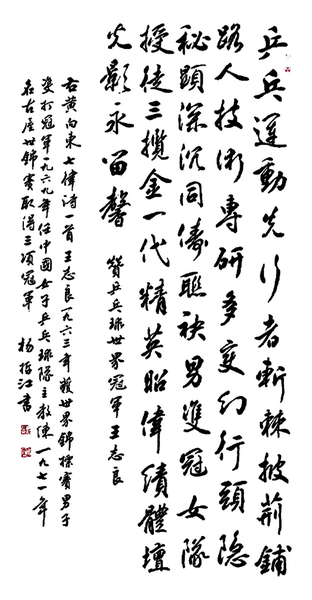 乒乓運動先行者斬棘披荊鋪
路人技術專研多變幻行頭隐
秘顕深沉同儔聯袂男雙冠女隊
授徒三攬金一代精英昭偉績體壇
光影永留馨
贊乒乓球世界冠軍王志良
右黄向東七律诗一首王志良一九六三年獲世界錦標賽男子
雙打冠軍一九六九年任中國女子乒乓球隊主教練一九七一年
名古屋世錦賽取得三項冠軍
楊指江書